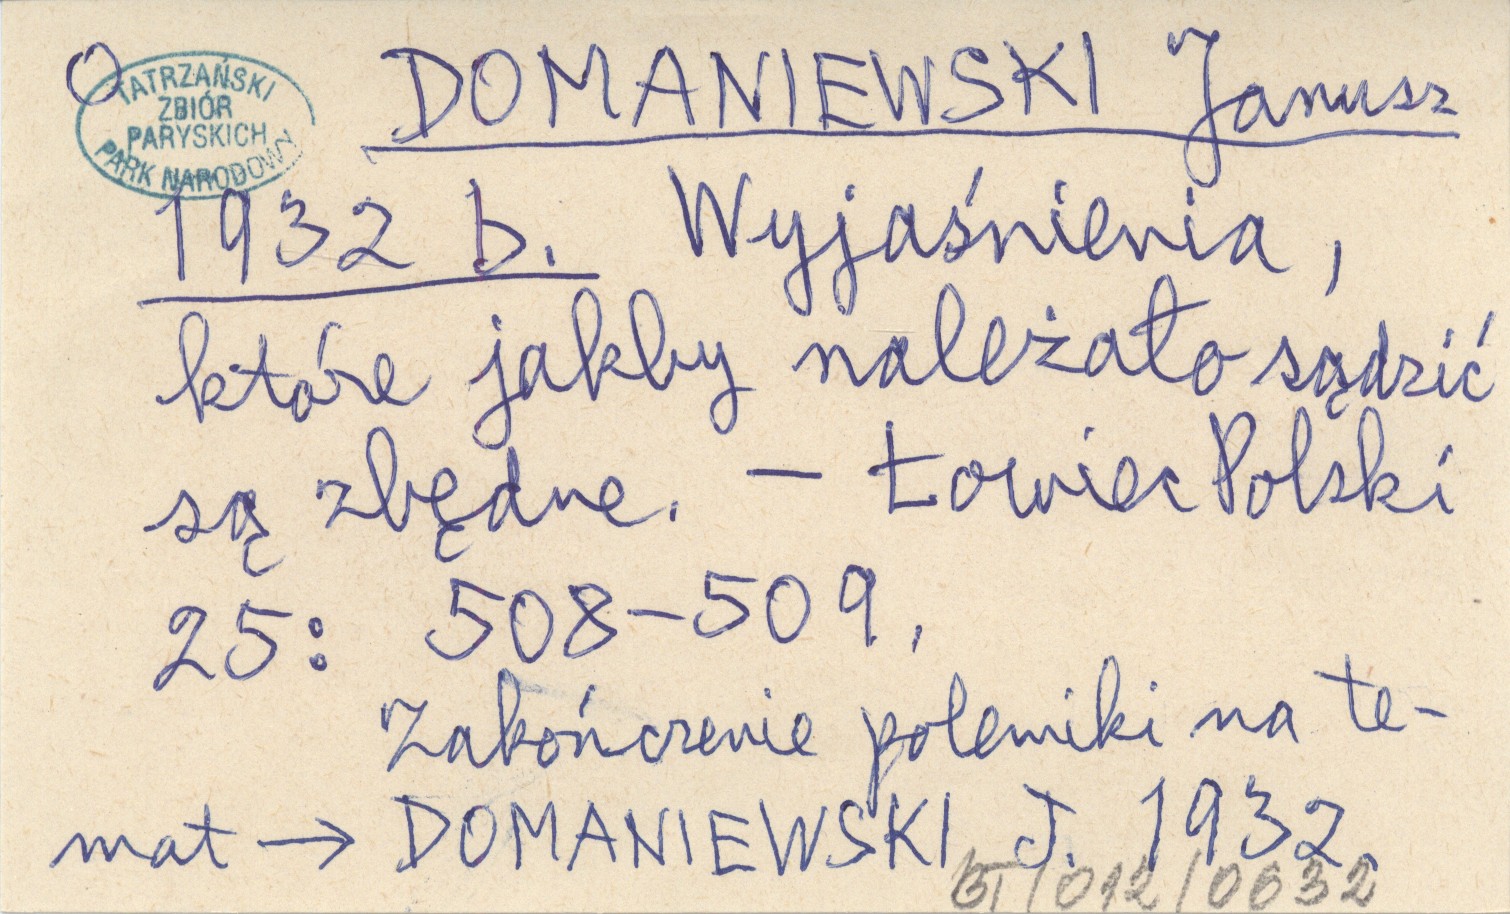 O
TATRZAŃSKI
ZBIÓR
PARYSKICH
PARK NARODOWY
DOMANIEWSKI Janusz
1932 b. Wyjaśnienia,
które jakby należało sądzić
są zbędne. — Łowiec Polski
25: 508-509.
Zakończenie polemiki na te-
mat → DOMANIEWSKI J. 1932.
BT/012/0632